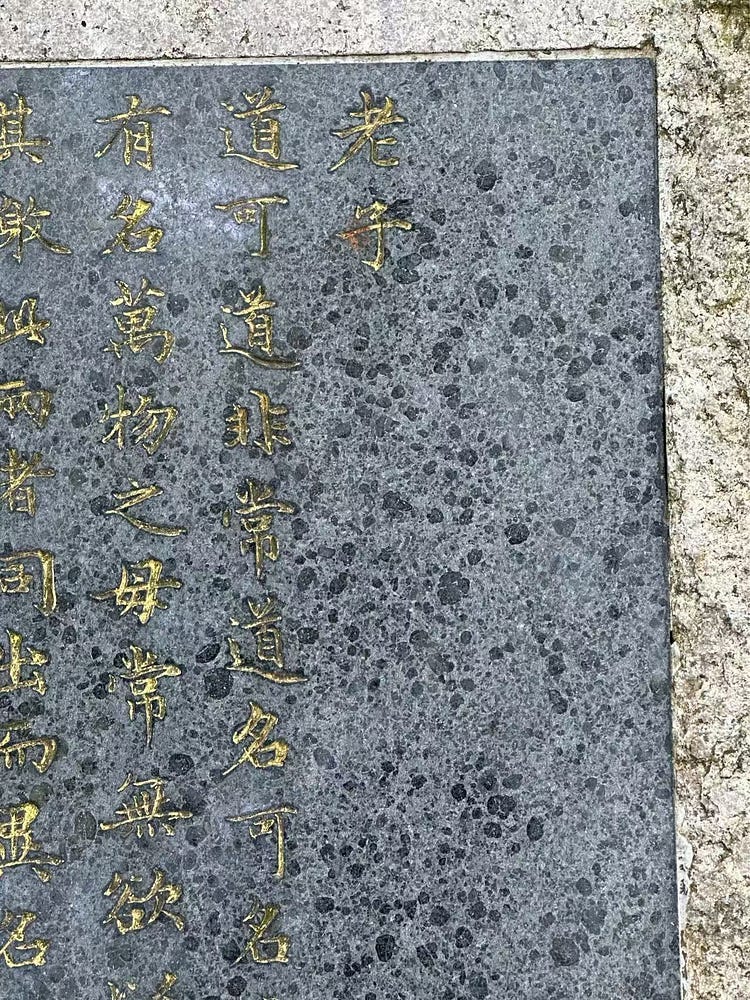 老子
道可道非常道名可名
有名萬物之母常無欲
其徼此兩者同出而異名